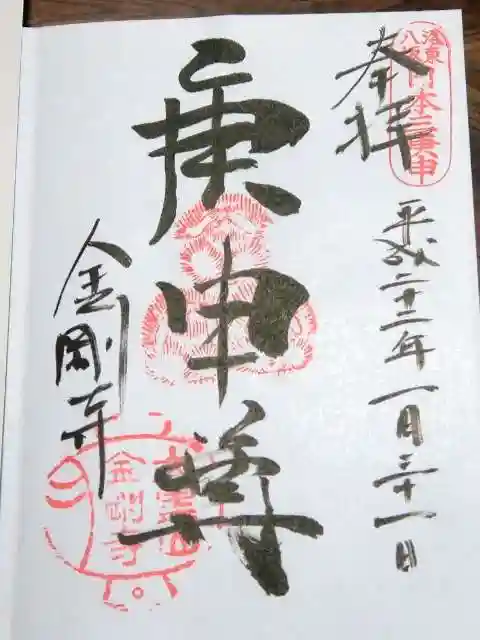 奉拝
洛東
八坂
日本三庚申
平成二十二年一月三十一日
庚申尊
金剛寺
金剛寺